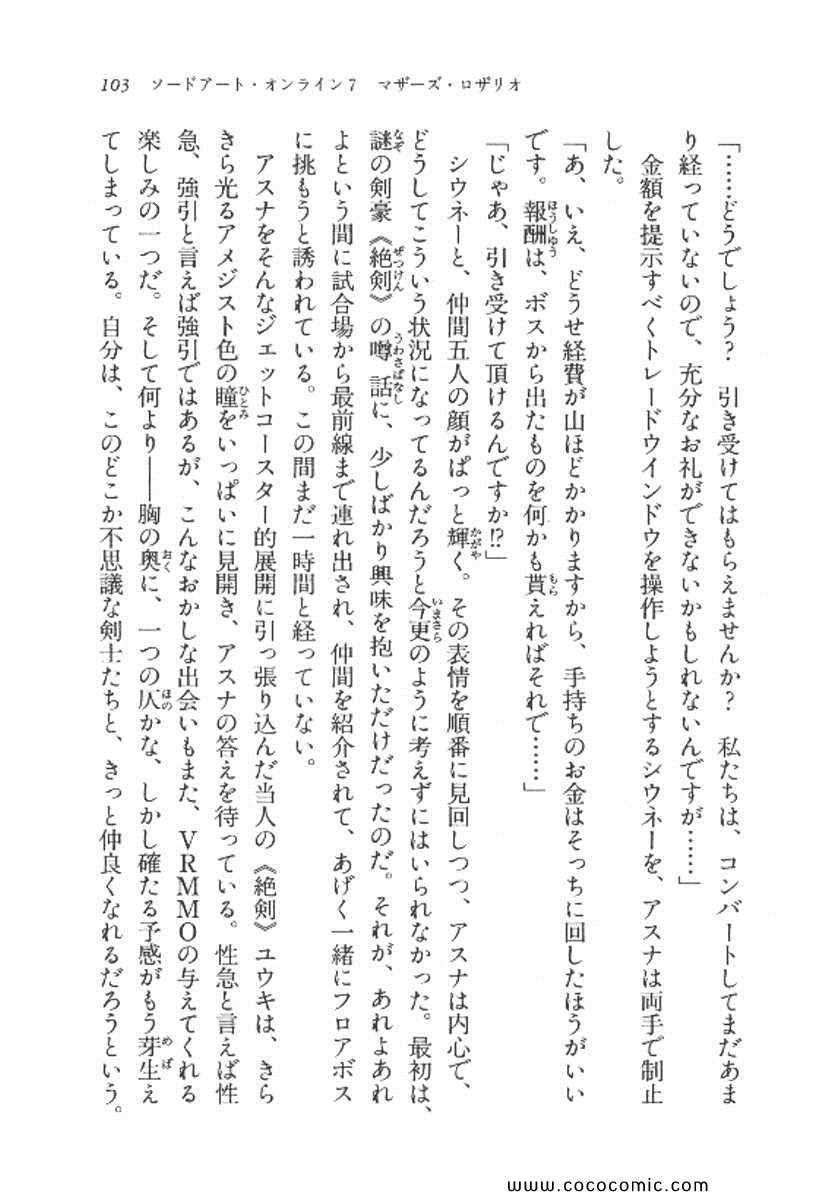 103　ソードアート・オンライン7　マザーズ・ロザリオ
「……どうでしょう？　引き受けてはもらえませんか？　私たちは、コンバートしてまだあま
り経っていないので、充分なお礼ができないかもしれないんですが……」
　金額を提示すべくトレードウインドウを操作しようとするシウネーを、アスナは両手で制止
した。
「あ、いえ、どうせ経費が山ほどかかりますから、手持ちのお金はそっちに回したほうがいい
です。報酬は、ボスから出たものを何かも貰えればそれで……」
「じゃあ、引き受けて頂けるんですか!?」
　シウネーと、仲間五人の顔がぱっと輝く。その表情を順番に見回しつつ、アスナは内心で、
どうしてこういう状況になってるんだろうと今更のように考えずにはいられなかった。最初は、
謎の剣豪《絶剣》の噂話に、少しばかり興味を抱いただけだったのだ。それが、あれよあれ
よという間に試合場から最前線まで連れ出され、仲間を紹介されて、あげく一緒にフロアボス
に挑もうと誘われている。この間まだ一時間と経っていない。
　アスナをそんなジェットコースター的展開に引っ張り込んだ当人の《絶剣》ユウキは、きら
きら光るアメジスト色の瞳をいっぱいに見開き、アスナの答えを待っている。性急と言えば性
急、強引と言えば強引ではあるが、こんなおかしな出会いもまた、VRMMOの与えてくれる
楽しみの一つだ。そして何より──胸の奥に、一つの仄かな、しかし確たる予感がもう芽生え
てしまっている。自分は、このどこか不思議な剣士たちと、きっと仲良くなれるだろうという。
www.cococomic.com/